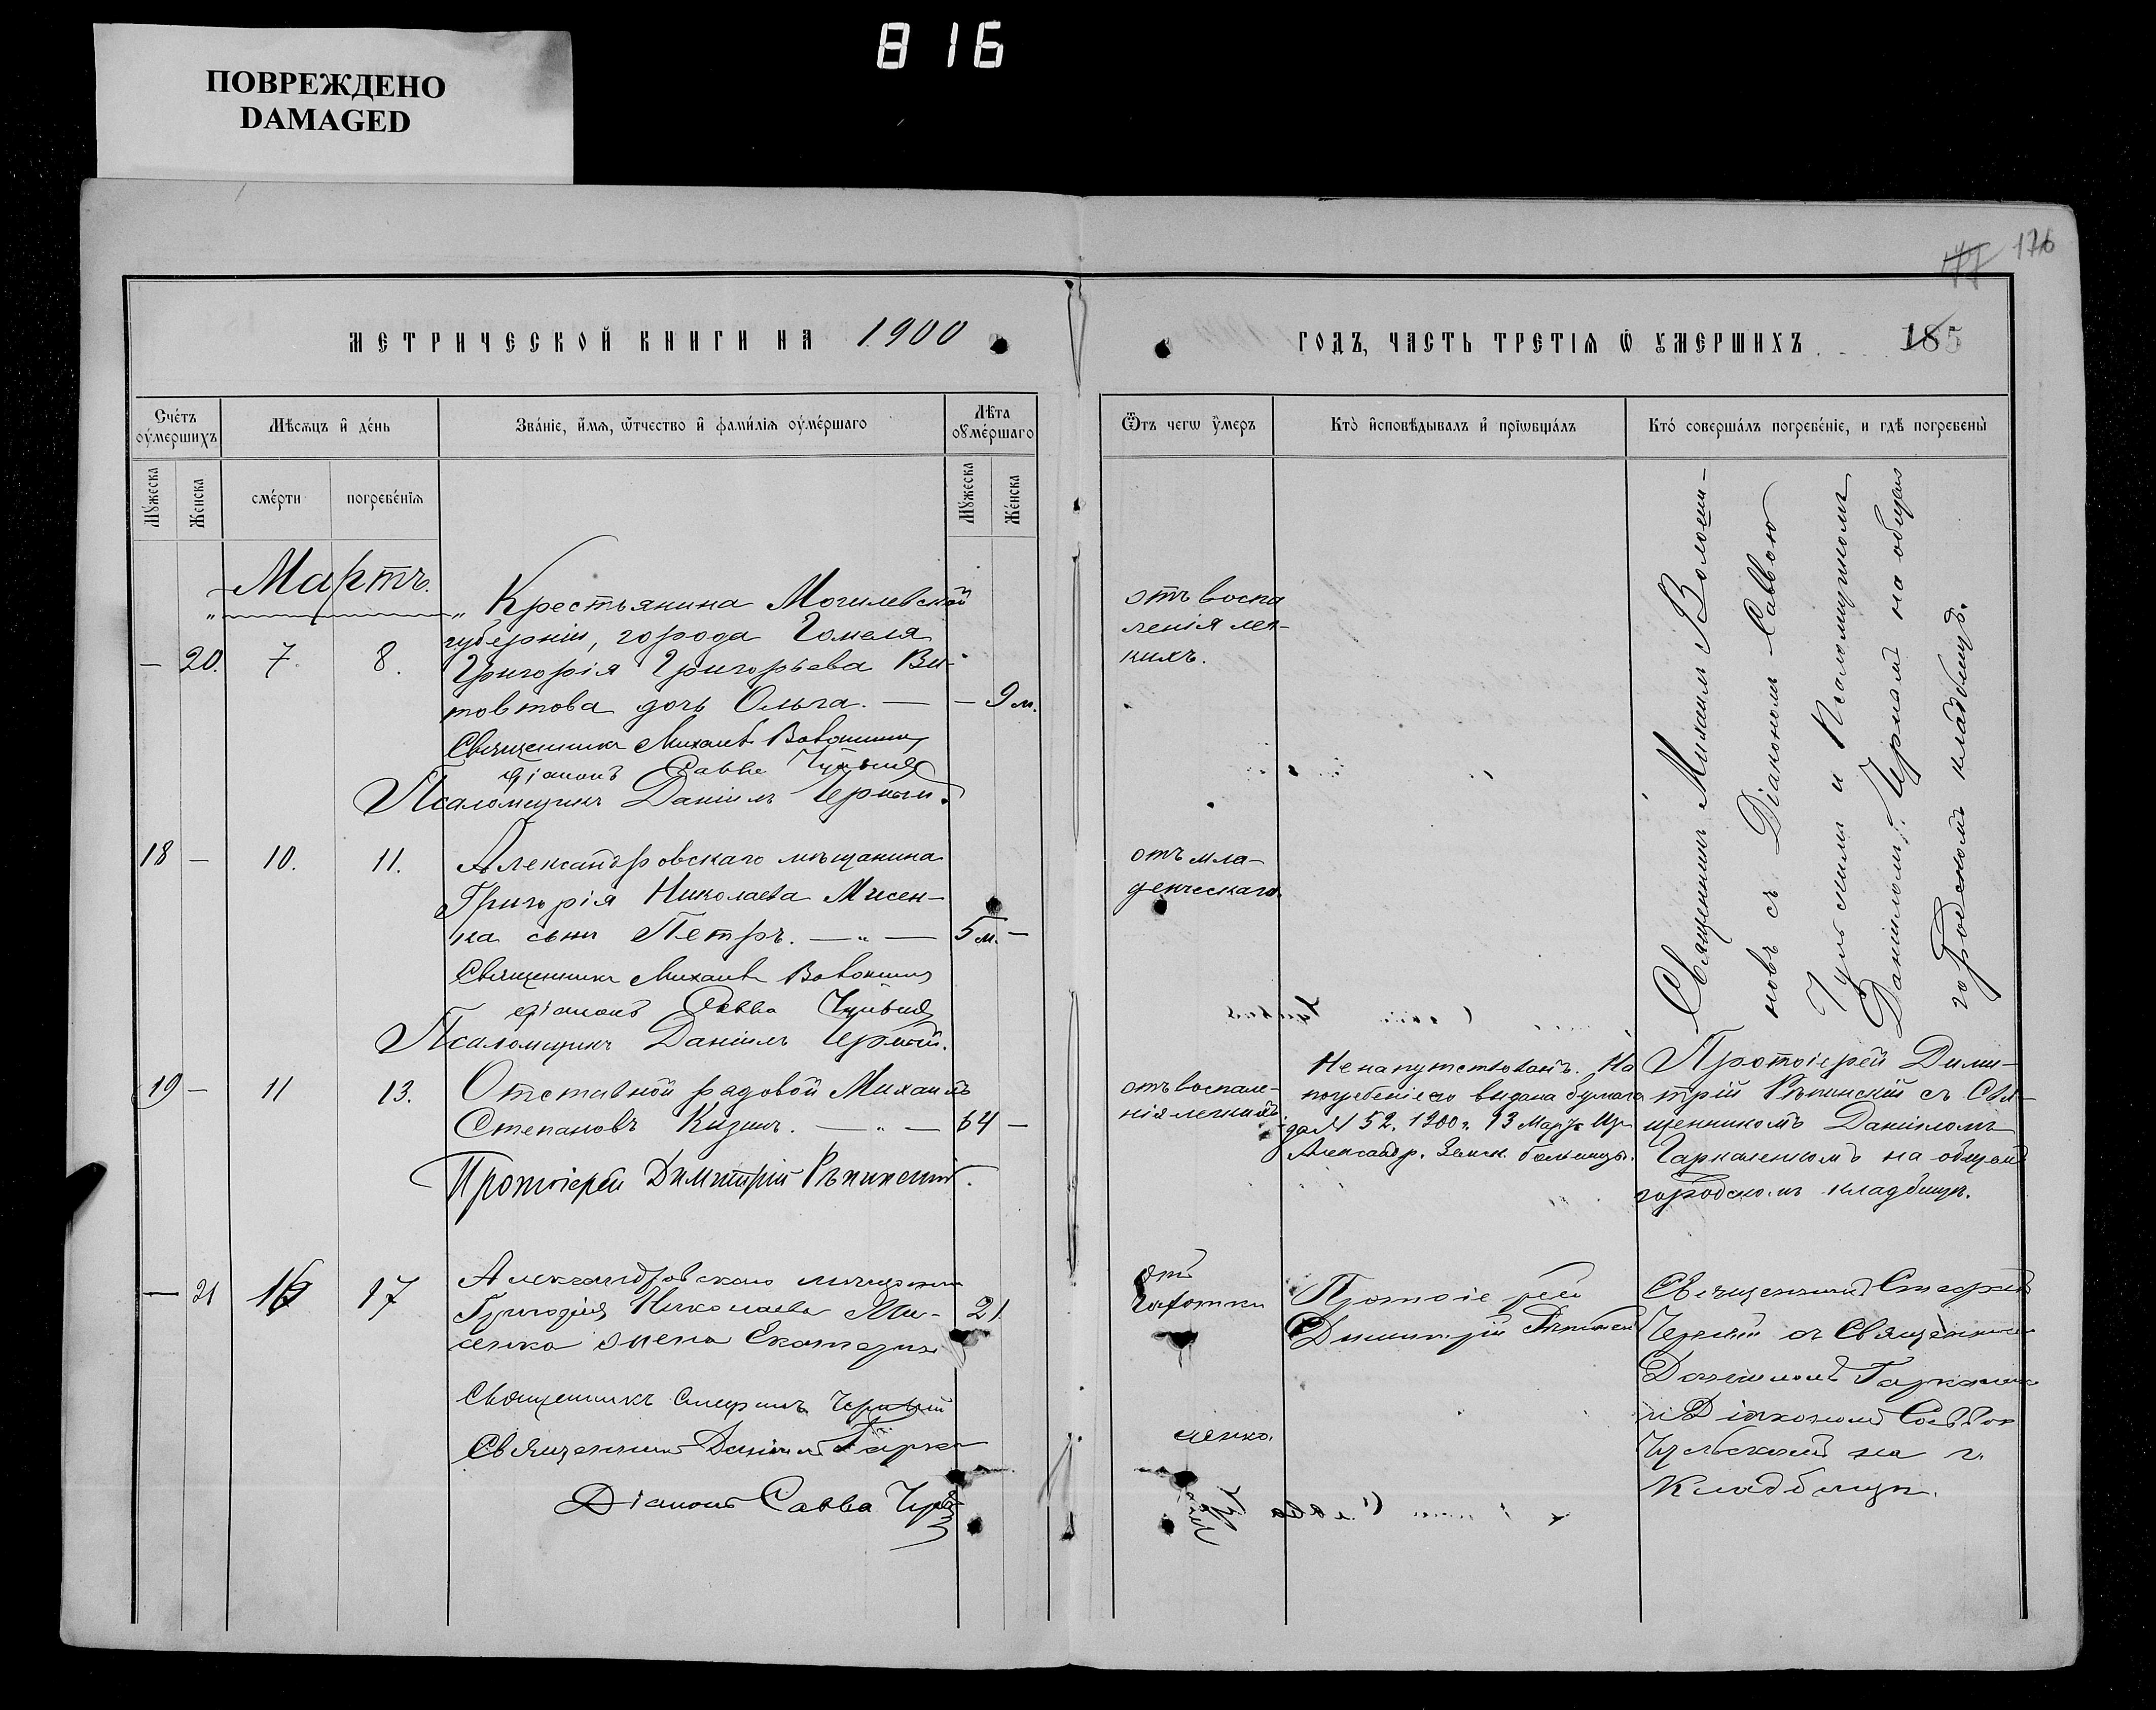 ПОВРЕЖДЕНО
DAMAGED
816
176
МЕТРИЧЕСКОЙ КНИГИ НА 1900
ГОДЪ, ЧАСТЬ ТРЕТІѦ Ѿ ОУМЕРШИХЪ
185
Счéтъ оу҆мéршихъ
Мѣсѧцъ и҆ дéнь
Звáнїе, и҆́мѧ, ѻ҆́тчество и҆ фамилїѧ оу҆мéршаго
Лѣ́та оу҆мéршаго
Мꙋжеска
Женска
смéрти
погребéнїѧ
Мꙋжеска
Женска
Ѿ чегѡ ᲂу҆́меръ
Ктò и҆сповѣ́дывалъ и҆ прїѡбщáлъ
Ктó совершáлъ погребéнїе, и гдѣ̀ погребены̀
Мартъ.
— 20. 7. 8.
Крестьянина Могилевской
губерніи, города Гомеля
Григорія Григорьева Ви-
товтова дочь Ольга. — — 9 м.
Священникъ Михаилъ Волошиновъ
Діаконъ Савва
Псаломщикъ Даніилъ Черный.
отъ воспа
ленія лег-
кихъ.
Священникъ Михаилъ Волоши-
новъ съ Діакономъ Саввою
и Псаломщикомъ
Даніиломъ Чернымъ на общемъ
городскомъ кладбищѣ.
18 — 10. 11.
Александровскаго мѣщанина
Григорія Николаева Мисен-
ка сынъ Петръ. — „ — 5 м. —
Священникъ Михаилъ Волошиновъ
Діаконъ Савва
Псаломщикъ Даніилъ Черный.
отъ мла-
денческаго.
19 — 11 13.
Отставной рядовой Михаилъ
Степановъ Кизимъ. — „ — 64 —
Протоіерей Димитрій Рѣпинскій.
отъ воспале-
нія легкихъ.
Ненапутствованъ. На
погребеніе его выдана бумага
за № 52. 1900 г. 13 Марта Из
Александр. Земск. больницы.
Протоіерей Дими-
трій Рѣпинскій съ Свя-
щенникомъ Даніиломъ
Гаркаленкомъ на общемъ
городскомъ кладбищѣ.
— 21 16 17
Александровскаго мѣщанина
Григорія Николаева Ми-
сенка жена Екатерина 21
Священникъ Стефанъ Черный
Священникъ Даніилъ Гарка
ленко.
Діаконъ Савва
отъ
чахотки
Протоіерей
Димитрій Рѣпинскій
Священникъ Стефанъ
Черный съ Священникомъ
Даніиломъ Гаркаленко
и Діакономъ Саввою
на г.
Кладбищѣ.